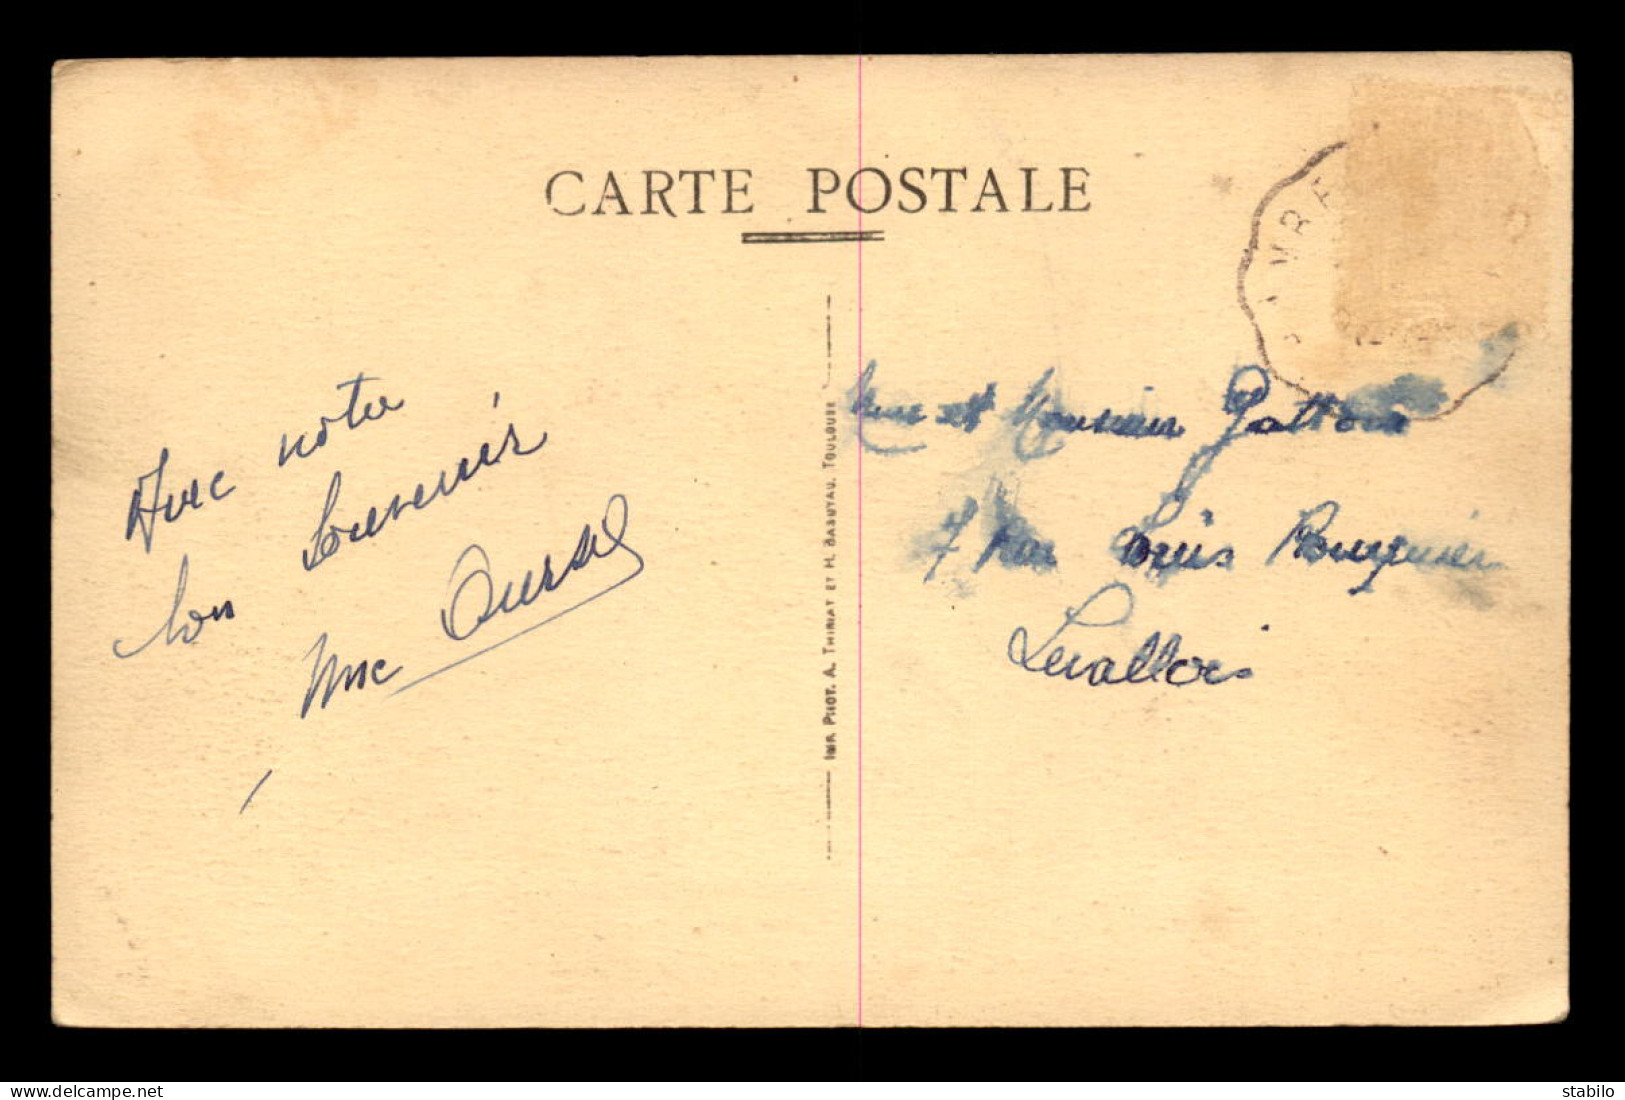 CARTE POSTALE
Avec notre
bon Souvenir
Mme
IMP. PHOT. A. THIRIAT ET H. BASUYAU, TOULOUSE
Mme et Monsieur
7 Rue Louis
Levallois
delcampe.net
stabilo